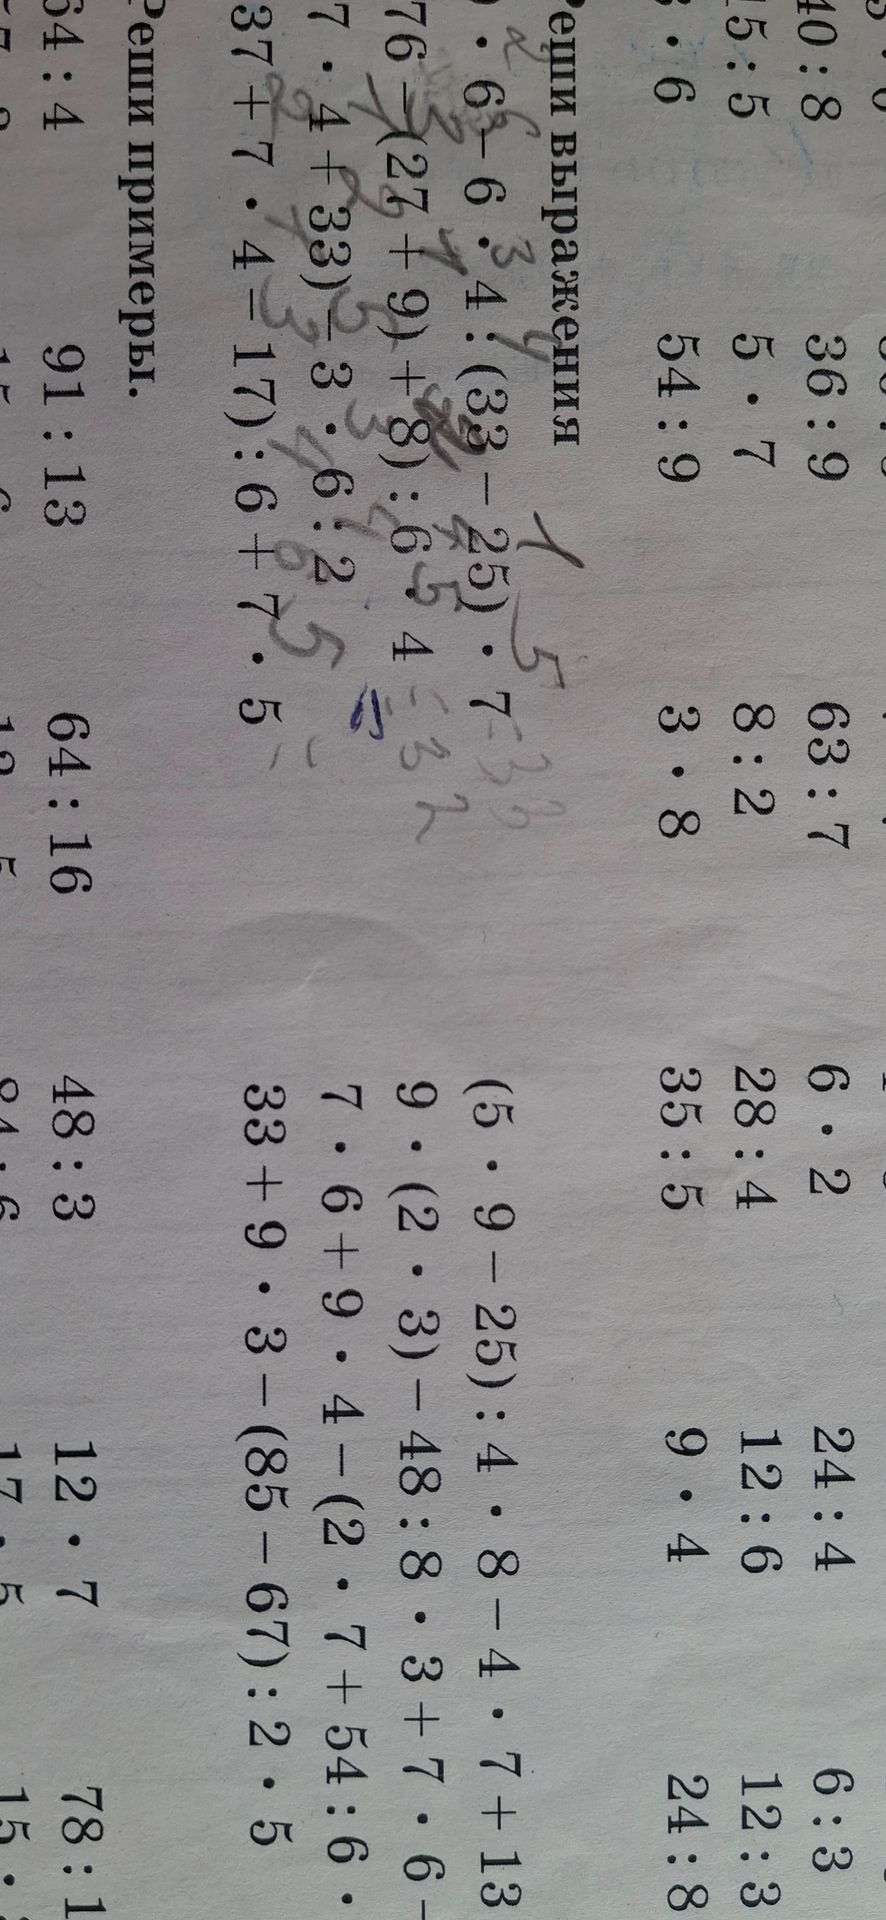 40 : 8 36 : 9 63 : 7 6 · 2 24 : 4 6 : 3
15 : 5 5 · 7 8 : 2 28 : 4 12 : 6 12 : 3
· 6 54 : 9 3 · 8 35 : 5 9 · 4 24 : 8
Реши выражения
· 6 − 6 · 4 : (33 − 25) · 7 (5 · 9 − 25) : 4 · 8 − 4 · 7 + 13
76 − (27 + 9) + 8) : 6 · 4 = 32 9 · (2 · 3) − 48 : 8 · 3 + 7 · 6 −
7 · 4 + 33) − 3 · 6 : 2 7 · 6 + 9 · 4 − (2 · 7 + 54 : 6 ·
37 + 7 · 4 − 17) : 6 + 7 · 5 = 33 + 9 · 3 − (85 − 67) : 2 · 5
Реши примеры.
64 : 4 91 : 13 64 : 16 48 : 3 12 · 7 78 : 1
17 · 5